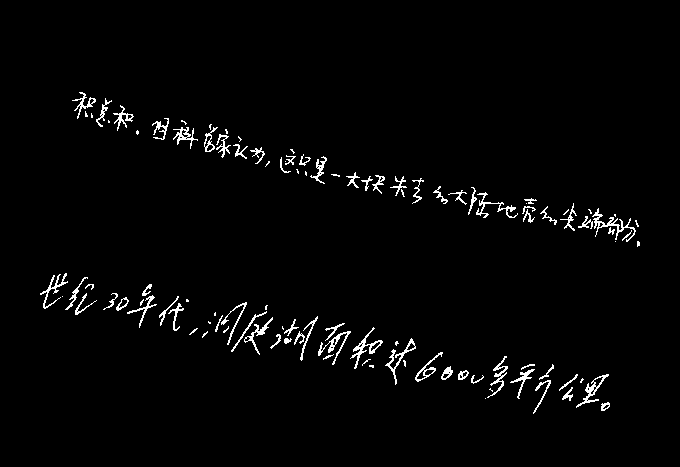 积总和。但科学家认为，这只是一大块失去的大陆地壳的尖端部分。
世纪30年代，洞庭湖面积达6000多平方公里。